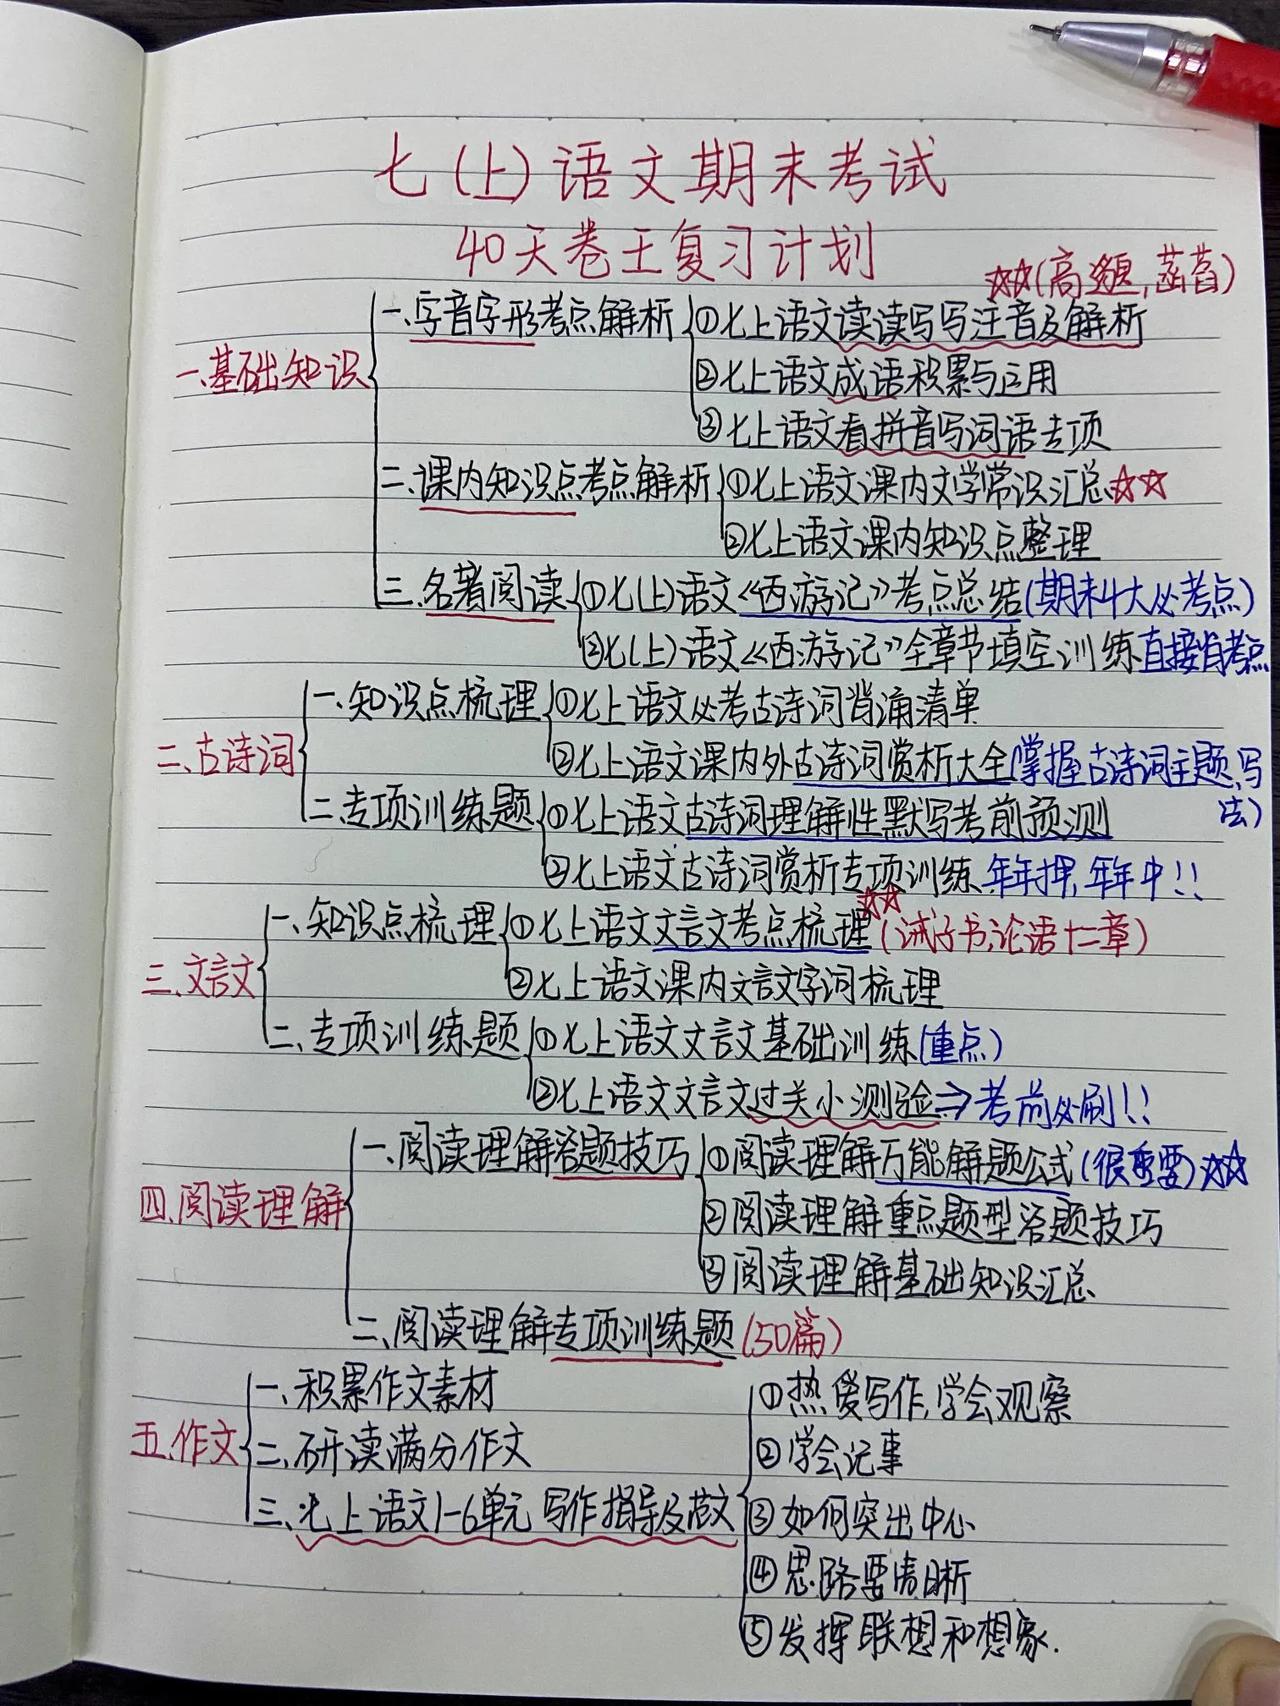 七(上)语文期末考试
40天卷王复习计划
☆☆(高邈,菡萏)
一、基础知识
一、字音字形考点解析
①七上语文读读写写注音及解析
②七上语文成语积累与运用
③七上语文看拼音写词语专项
二、课内知识点考点解析
①七上语文课内文学常识汇总☆☆
②七上语文课内知识点整理
三、名著阅读
①七(上)语文《西游记》考点总结(期末4大必考点)
②七(上)语文《西游记》全章节填空训练直接背考点
二、古诗词
一、知识点梳理
①七上语文必考古诗词背诵清单
②七上语文课内外古诗词赏析大全(掌握古诗词主题,写
法)
二、专项训练题
①七上语文古诗词理解性默写考前预测
②七上语文古诗词赏析专项训练 年年押,年年中!!
三、文言文
一、知识点梳理
①七上语文文言文考点梳理☆☆(诫子书,论语十二章)
②七上语文课内文言文字词梳理
二、专项训练题
①七上语文文言文基础训练(重点)
②七上语文文言文过关小测验⇒考前必刷!!
四、阅读理解
一、阅读理解答题技巧
①阅读理解万能解题公式(很重要)☆☆
②阅读理解重点题型答题技巧
③阅读理解基础知识汇总
二、阅读理解专项训练题(50篇)
五、作文
一、积累作文素材
二、研读满分作文
三、七上语文1-6单元写作指导及范文
①热爱写作,学会观察
②学会记事
③如何突出中心
④思路要清晰
⑤发挥联想和想象.